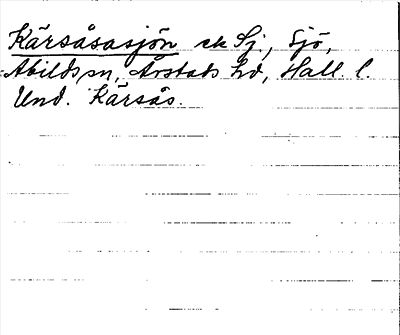 Kärsåsasjön ek Sj., sjö,
Abilds sn, Årstads hd, Hall. l.
Und. Kärsås.